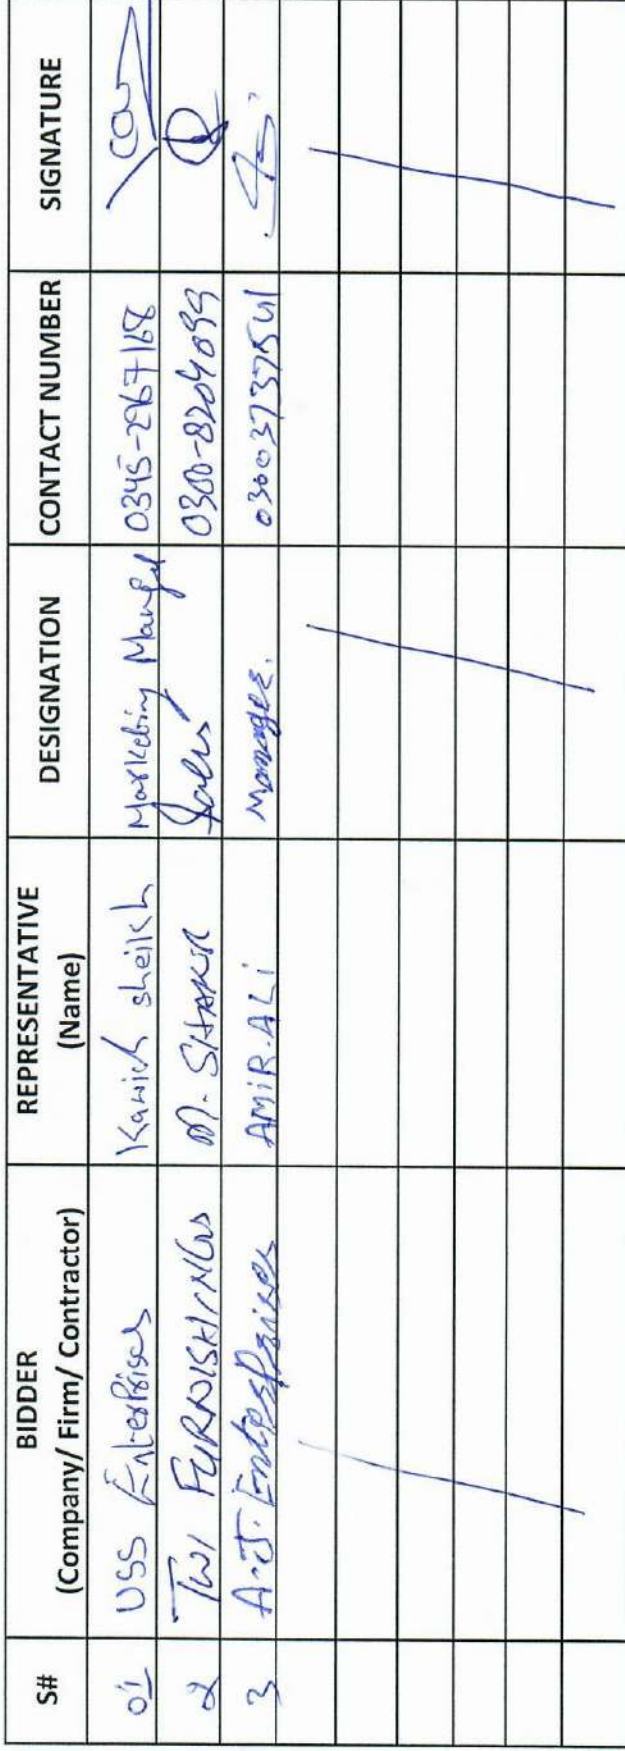 S# BIDDER (Company/ Firm/ Contractor) REPRESENTATIVE (Name) DESIGNATION CONTACT NUMBER SIGNATURE
01 USS Enterprises Kawich sheikh Marketing 0345-2967168
2 TWI FURNISHINGS M. SHAKIR Sales 0300-8204099
3 A.J. Enterprises AMIR.ALI Manager. 03003737541